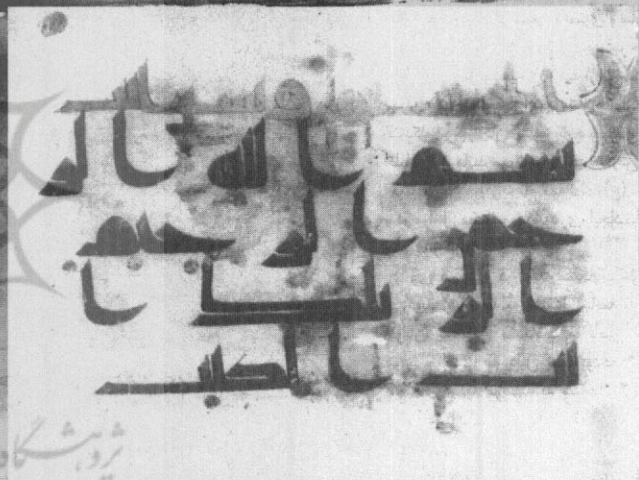 بسم الله الر
حمن الرحيم
الر تلك ا
يت الكتب